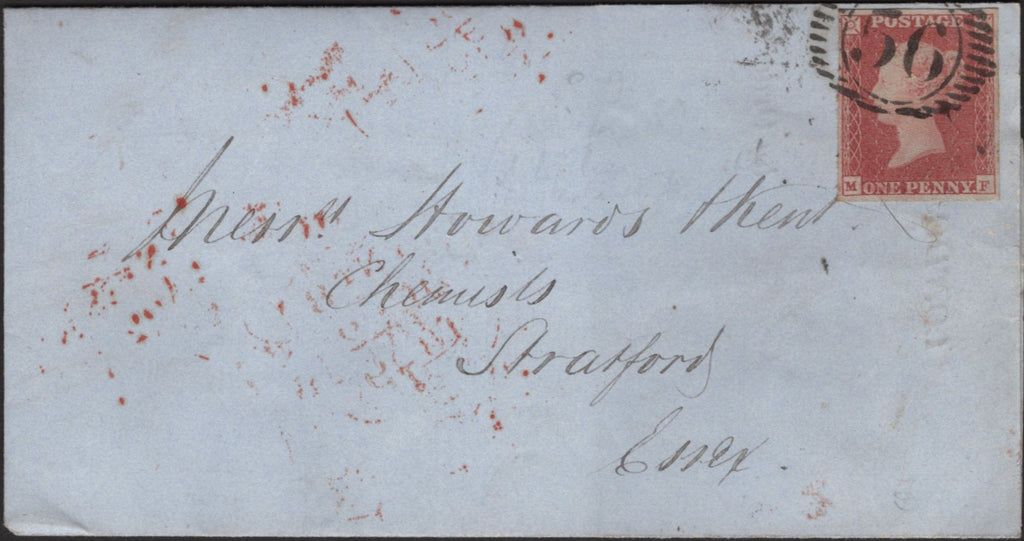 POSTAGE
36
M ONE PENNY F
Messrs. Howards & Kent.
Chemists
Stratford
Essex.